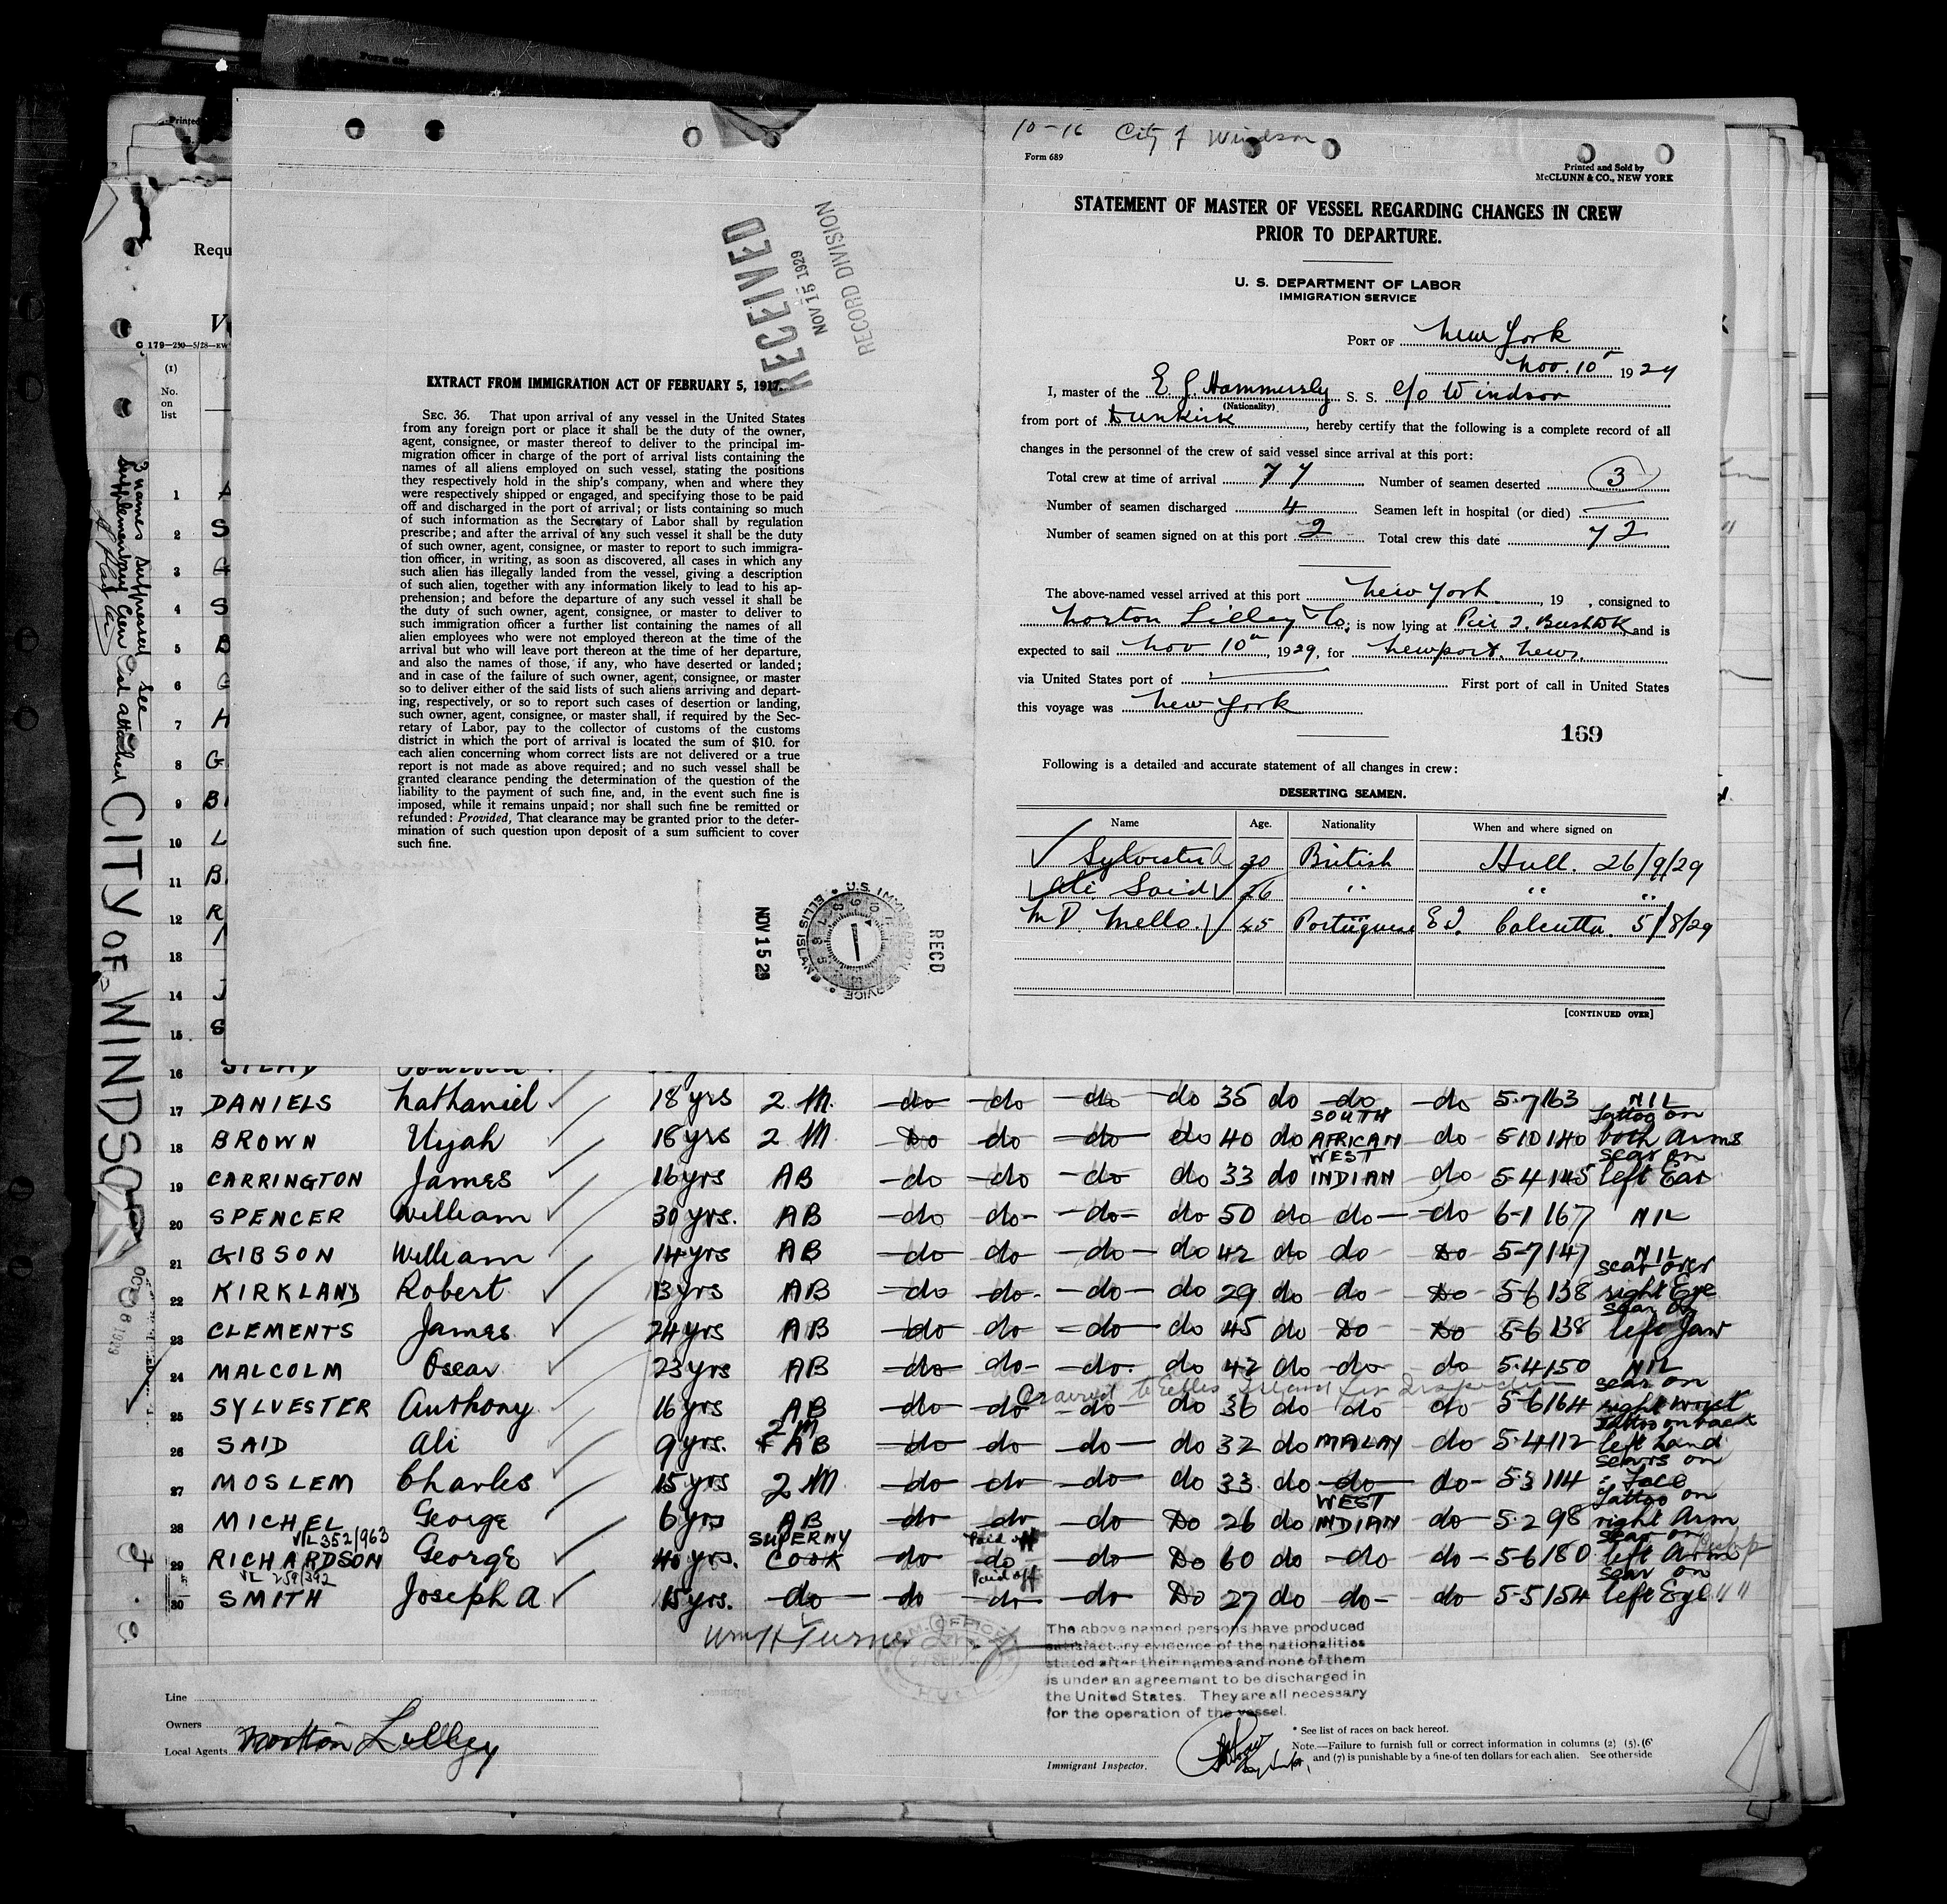 Printed
Requ
V
C 179—230—5/28—EW
(1)
No.
on
list
3 names suppressed see
Supplementary Crew List attached
CITY OF WINDSOR
RECEIVED
NOV 15 1929
RECORD DIVISION
EXTRACT FROM IMMIGRATION ACT OF FEBRUARY 5, 1917.
SEC. 36. That upon arrival of any vessel in the United States
from any foreign port or place it shall be the duty of the owner,
agent, consignee, or master thereof to deliver to the principal im-
migration officer in charge of the port of arrival lists containing the
names of all aliens employed on such vessel, stating the positions
they respectively hold in the ship's company, when and where they
were respectively shipped or engaged, and specifying those to be paid
off and discharged in the port of arrival; or lists containing so much
of such information as the Secretary of Labor shall by regulation
prescribe; and after the arrival of any such vessel it shall be the duty
of such owner, agent, consignee, or master to report to such immigra-
tion officer, in writing, as soon as discovered, all cases in which any
such alien has illegally landed from the vessel, giving a description
of such alien, together with any information likely to lead to his ap-
prehension; and before the departure of any such vessel it shall be
the duty of such owner, agent, consignee, or master to deliver to
such immigration officer a further list containing the names of all
alien employees who were not employed thereon at the time of the
arrival but who will leave port thereon at the time of her departure,
and also the names of those, if any, who have deserted or landed;
and in case of the failure of such owner, agent, consignee, or master
so to deliver either of the said lists of such aliens arriving and depart-
ing, respectively, or so to report such cases of desertion or landing,
such owner, agent, consignee, or master shall, if required by the Sec-
retary of Labor, pay to the collector of customs of the customs
district in which the port of arrival is located the sum of $10. for
each alien concerning whom correct lists are not delivered or a true
report is not made as above required; and no such vessel shall be
granted clearance pending the determination of the question of the
liability to the payment of such fine, and, in the event such fine is
imposed, while it remains unpaid; nor shall such fine be remitted or
refunded: Provided, That clearance may be granted prior to the deter-
mination of such question upon deposit of a sum sufficient to cover
such fine.
NOV 15 29
U.S. IMMIGRATION SERVICE ELLIS ISLAND
RECD
10-16 City of Windsor
Form 689
Printed and Sold by
McCLUNN & CO., NEW YORK
STATEMENT OF MASTER OF VESSEL REGARDING CHANGES IN CREW
PRIOR TO DEPARTURE.
U. S. DEPARTMENT OF LABOR
IMMIGRATION SERVICE
PORT OF New York
Nov. 10 1929
I, master of the E J Hammersly S. S. C/o Windsor
(Nationality)
from port of Dunkirk, hereby certify that the following is a complete record of all
changes in the personnel of the crew of said vessel since arrival at this port:
Total crew at time of arrival 77 Number of seamen deserted 3
Number of seamen discharged 4 Seamen left in hospital (or died) —
Number of seamen signed on at this port 2 Total crew this date 72
The above-named vessel arrived at this port New York, 19 , consigned to
Norton Lilley Co; is now lying at Pier 2. Bush Dk and is
expected to sail Nov 10th, 1929, for Newport News.
via United States port of First port of call in United States
this voyage was New York
169
Following is a detailed and accurate statement of all changes in crew:
DESERTING SEAMEN.
Name Age. Nationality When and where signed on
Sylvester A 30 British Hull. 26/9/29
Ali Said 26 " " "
M D. Mello. 45 Portuguese E I. Calcutta. 5/8/29
[CONTINUED OVER]
1 A
2 S
3 G
4 S
5 B
6 G
7 H
8 G
9 B
10 L
11 B
12 R
13
14 J
15 S
16
17 DANIELS Nathaniel 18 yrs 2 M. do do do do 35 do do do 5-7 163 NIL
18 BROWN Uyah 16 yrs 2 M Do do do do 40 do SOUTH AFRICAN do 5 10 140 Tattoo on both Arms
19 CARRINGTON James 16 yrs AB do do do do 33 do WEST INDIAN do 5-4 145 scar on left Ear
20 SPENCER William 30 yrs. AB do do do do 50 do do do 6-1 167 NIL
21 GIBSON William 14 yrs AB do do do do 42 do do Do 5-7 147 NIL
22 KIRKLAND Robert 13 yrs AB do do do do 29 do do Do 5-6 138 scar over right Eye
23 CLEMENTS James 24 yrs AB do do do do 45 do Do Do 5-6 138 scar on left Jaw
24 MALCOLM Oscar 23 yrs AB do do do do 42 do do do 5-4 150 NIL
25 SYLVESTER Anthony 16 yrs AB do do do do 36 do do do 5-6 164 scar on right wrist
26 SAID Ali 9 yrs. 2 M + AB do do do do 32 do MALAY do 5-4 112 Tattoo on back left hand
27 MOSLEM Charles 15 yrs 2 M do do do do 33 do do do 5-3 114 scars on Face
28 MICHEL George 6 yrs AB do do do Do 26 do WEST INDIAN do 5-2 98 Tattoo on right Arm
VL 352/963
29 RICHARDSON George 40 yrs. SUPERNY COOK do Paid off do do Do 60 do do do 5-6 180 scar on left Arm
VL 259/392
30 SMITH Joseph A 15 yrs. do do Paid off do do Do 27 do do do 5-5 154 scar on left Eye " "
Wm H Turner
HULL
The above named persons have produced
satisfactory evidence of the nationalities
stated after their names and none of them
is under an agreement to be discharged in
the United States. They are all necessary
for the operation of the vessel.
Line
Owners
Local Agents Norton Lilley
Immigrant Inspector.
* See list of races on back hereof.
Note.—Failure to furnish full or correct information in columns (2) (5), (6
and (7) is punishable by a fine of ten dollars for each alien. See otherside